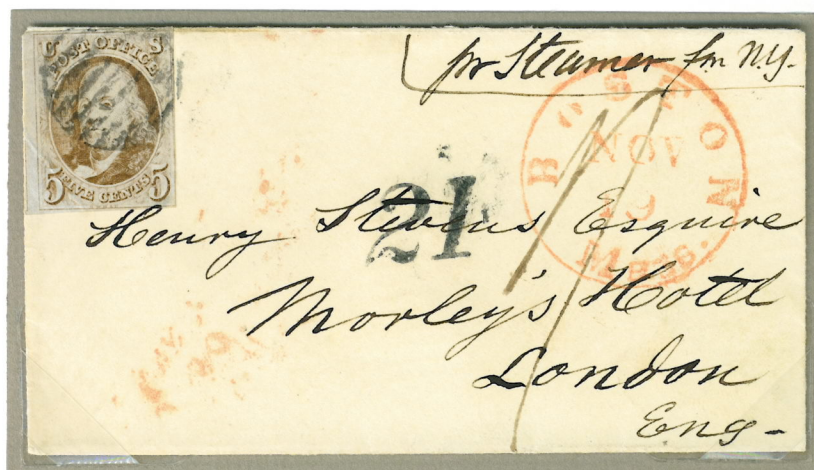 U S
POST OFFICE
FIVE CENTS
5 5
pr Steamer fm N.Y.
BOSTON
NOV
Mass.
21
Henry Stevens Esquire
Morley's Hotel
London
Eng-